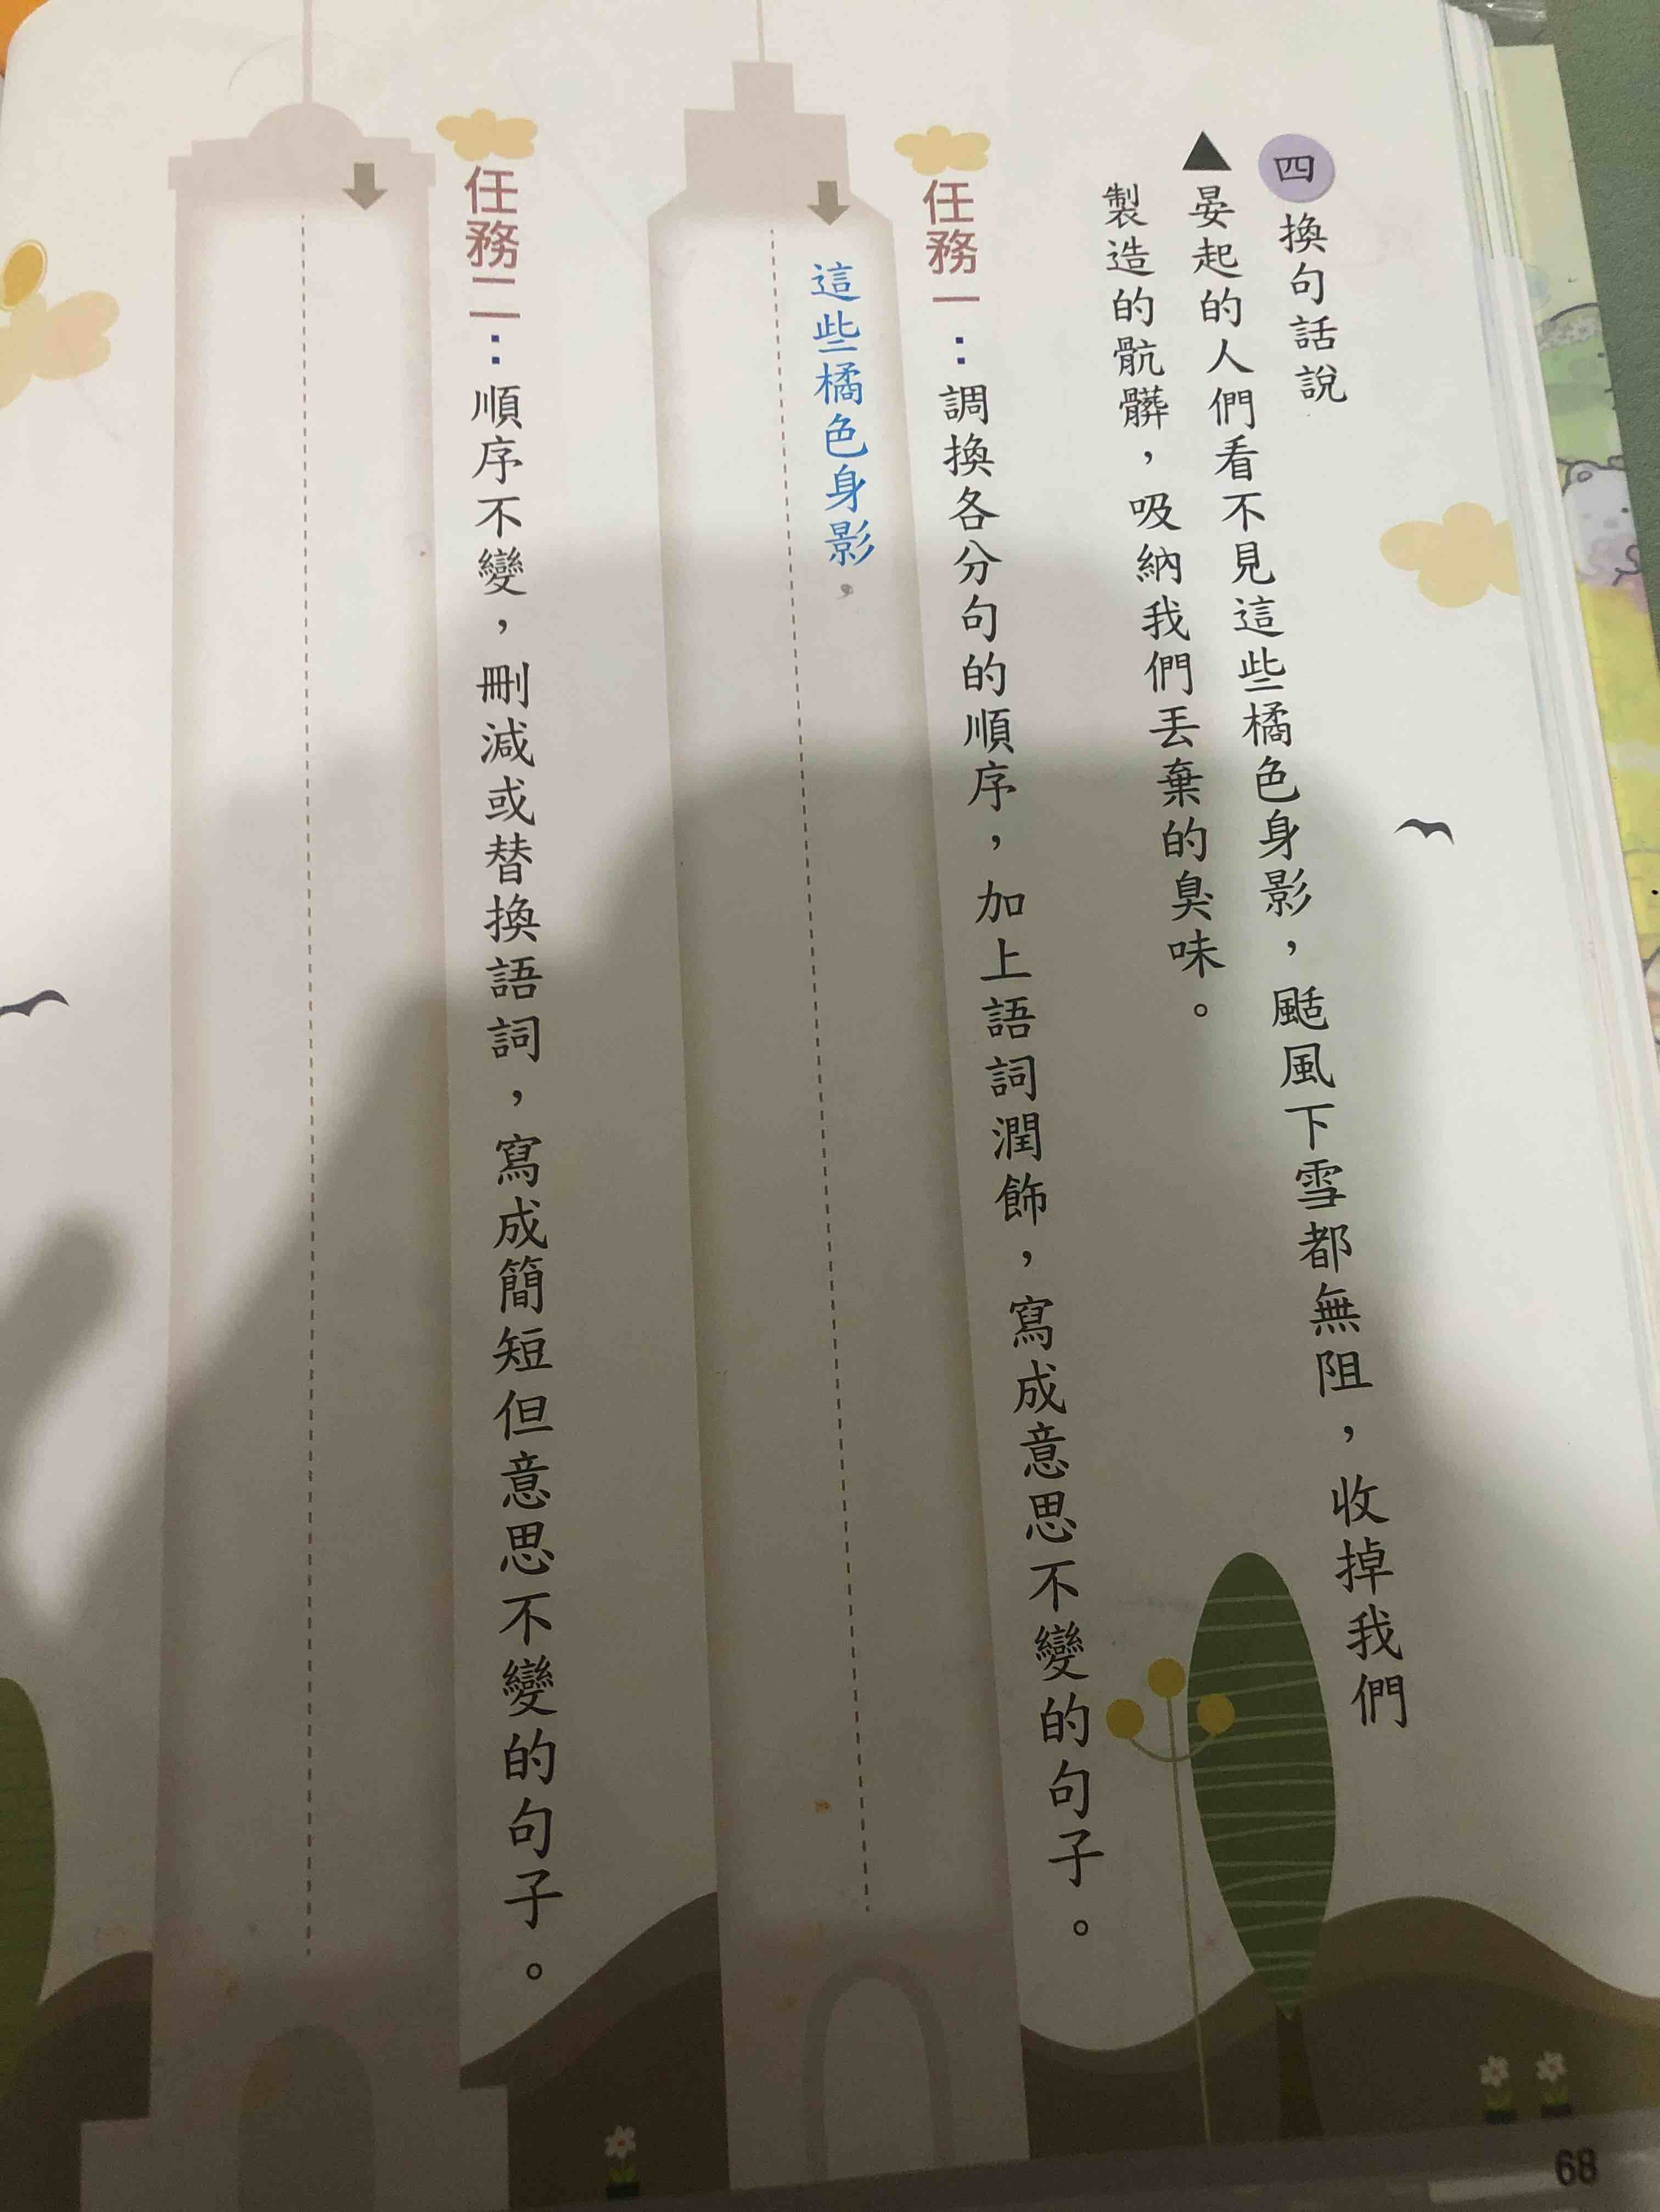 四 換句話說
▲晏起的人們看不見這些橘色身影，颳風下雪都無阻，收掉我們
製造的骯髒，吸納我們丟棄的臭味。
任務一：調換各分句的順序，加上語詞潤飾，寫成意思不變的句子。
這些橘色身影，
任務二：順序不變，刪減或替換語詞，寫成簡短但意思不變的句子。
68